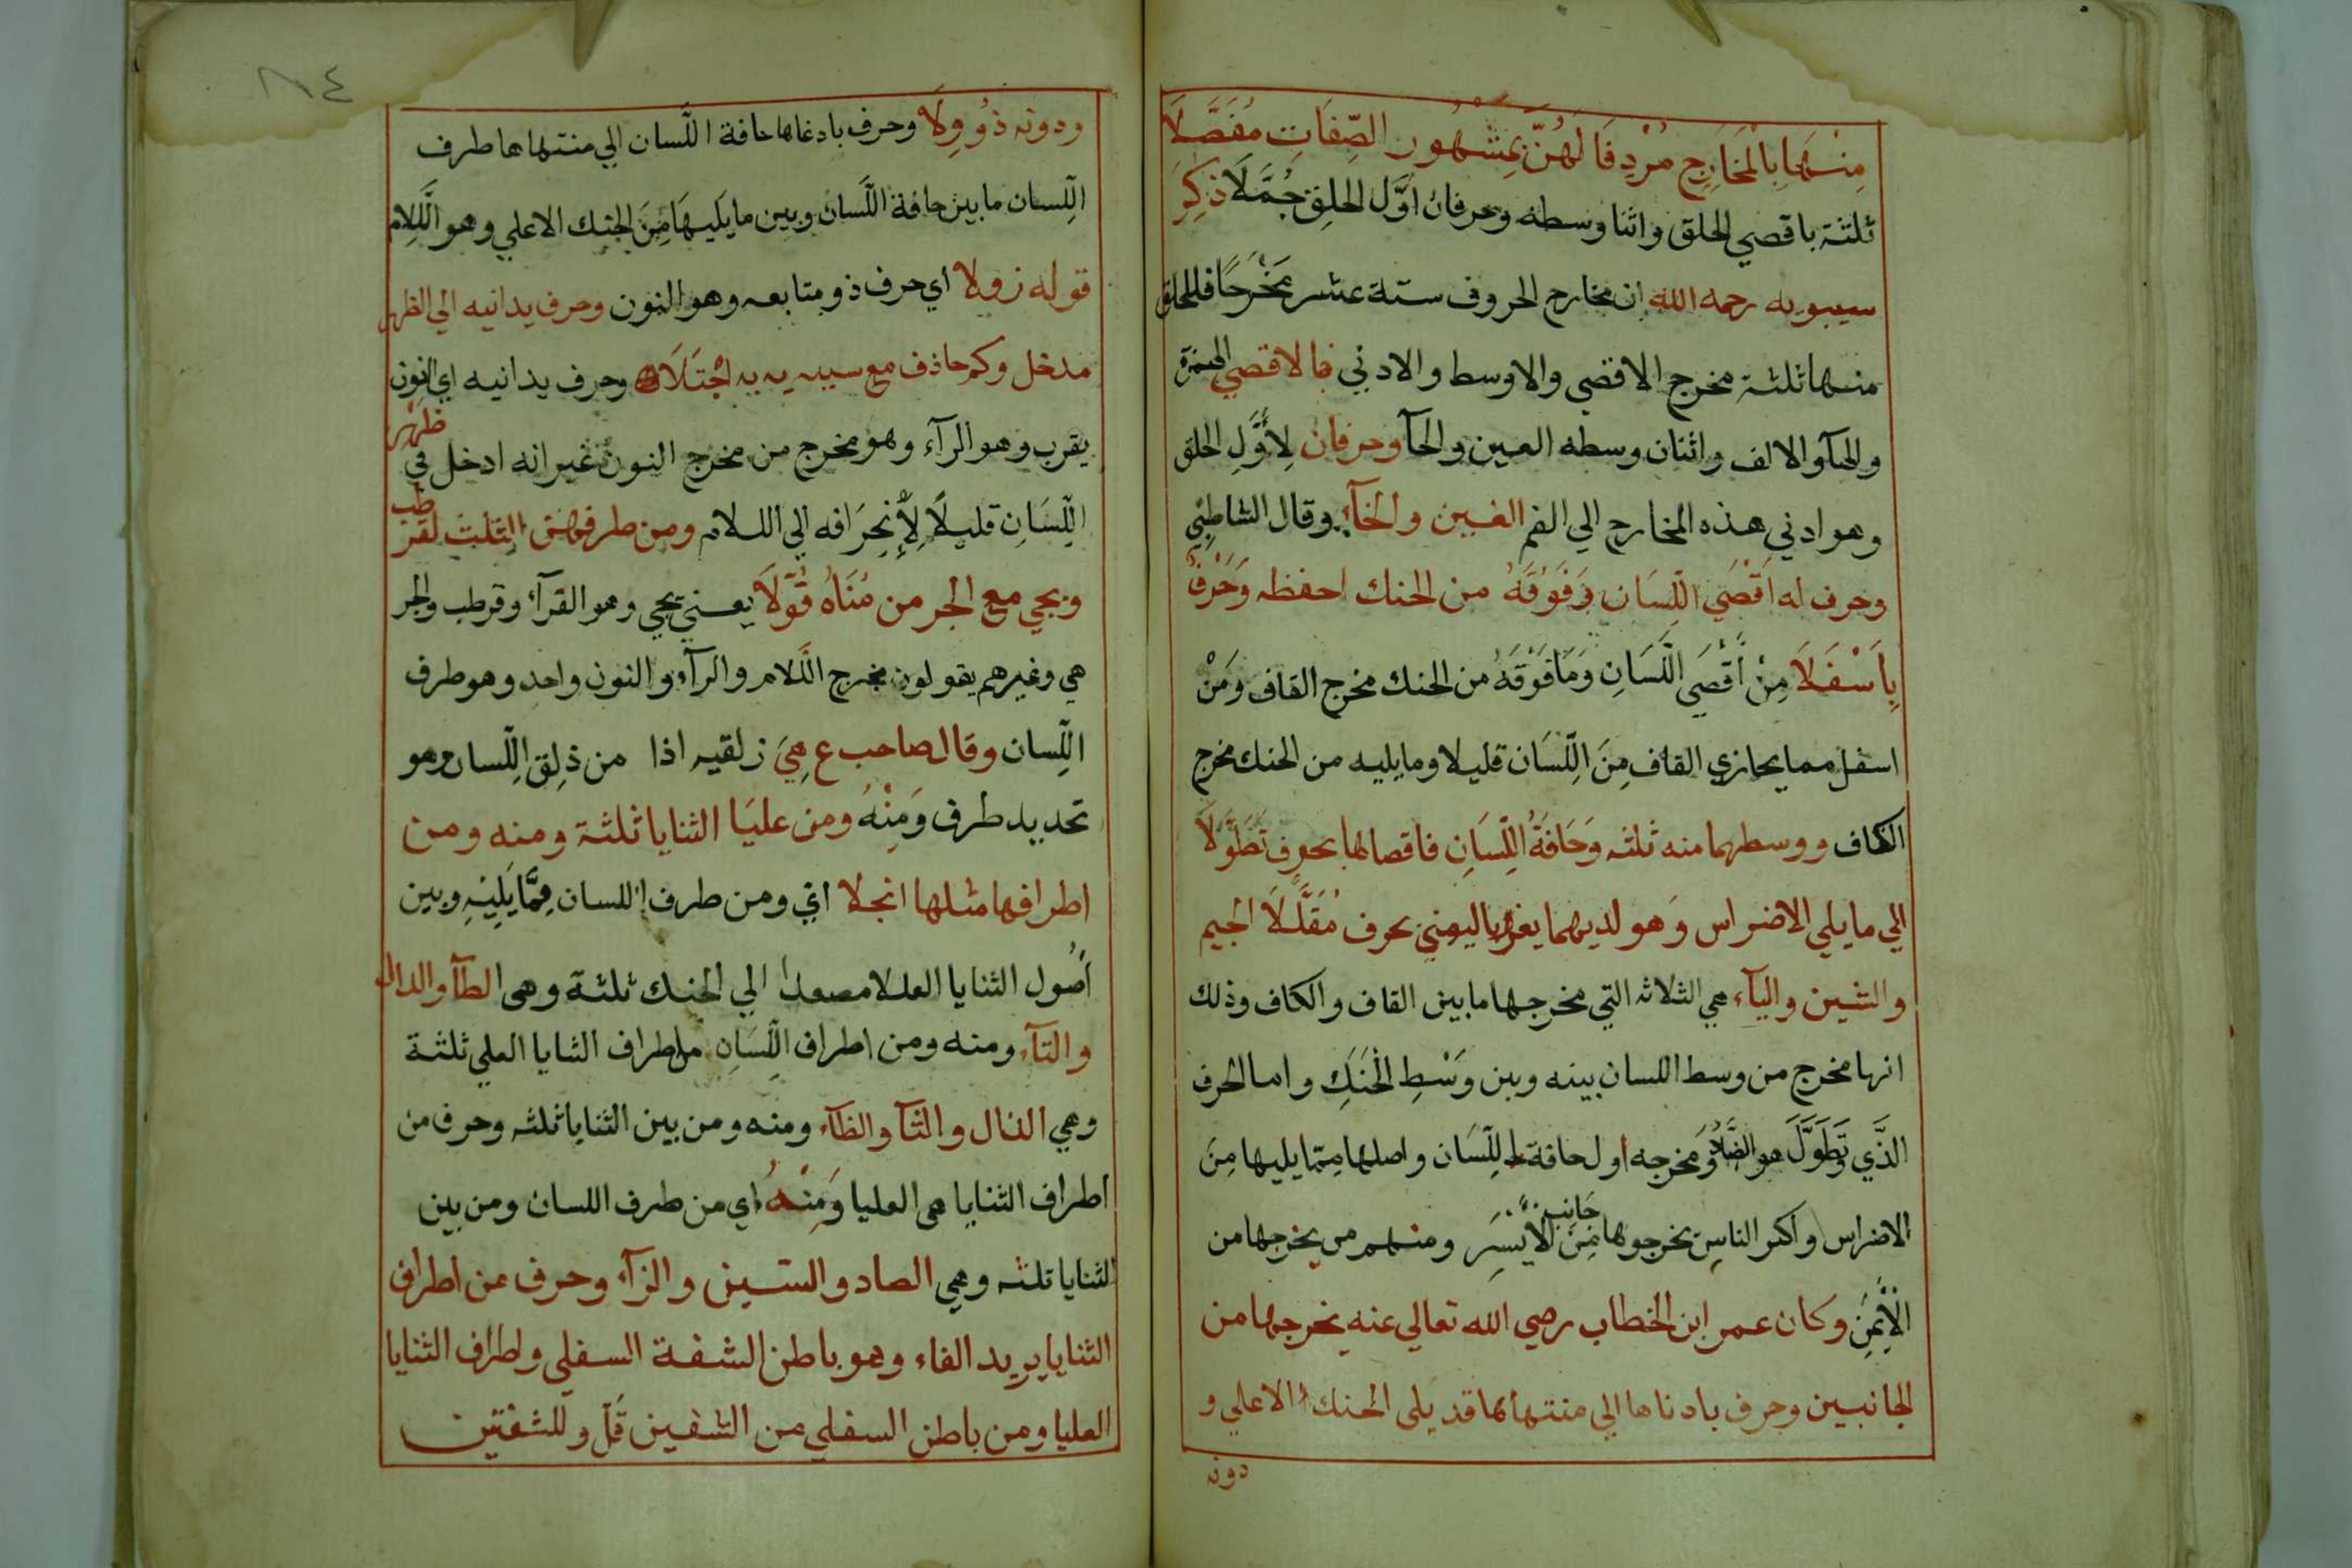 منها بالمخارج مردفا لهن بمشهور الصفات مفصلا
ثلثة باقصي الحلق واثنا وسطه وحرفان اول الحلق جملا ذكر
سيبويه رحمه الله ان مخارج الحروف ستة عشر مخرجا فللحلق
منها ثلثة مخرج الاقصي والاوسط والادني فالاقصي الهمزة
والهآ والالف واثنان وسطه العين والحآ وحرفان لاول الحلق
وهو ادني هذه المخارج الي الفم الغين والخآء وقال الشاطبي
وحرف له اقصي اللسان وفوقه من الحنك احفظه وحرف
باسفلا من اقصي اللسان وما فوقه من الحنك مخرج القاف ومن
اسفل مما يحازي القاف من اللسان قليلا وما يليه من الحنك مخرج
الكاف ووسطهما منه ثلثه وحافة اللسان فاقصاها بحرف تطولا
الي ما يلي الاضراس وهو لديهما يعز باليمني بحرف مقللا الجيم
والشين واليآء هي الثلاثه التي مخرجها ما بين القاف والكاف وذلك
انها مخرج من وسط اللسان بينه وبين وسط الحنك واما الحرف
الذي تطول هو الضاد ومخرجه اول حافة اللسان واصلها مما يليها من
الاضراس واكثر الناس يخرجوها من جانب الايسر ومنهم من يخرجها من
الايمن وكان عمر ابن الخطاب رضي الله تعالي عنه يخرجها من
الجانبين وحرف بادناها الي منتهاها قد يلى الحنك الاعلي و
دونه
٨١٤
ودونه ذو ولا وحرف بادغاها حافة اللسان الي منتهاها طرف
اللسان ما بين حافة اللسان وبين ما يكيها من الحنك الاعلي وهو اللام
قوله زولا اي حرف ذو متابعه وهو النون وحرف يدانيه الي الظهر
مدخل وكم حاذف مع سيبه يه به اجتلا وحرف يدانيه اي النون
يقرب وهو الرآء وهو مخرج من مخرج النون غير انه ادخل في ظهر
اللسان قليلا لانحرافه الي اللام ومن طرفهن الثلث لقرطب
ويحي مع الجر من مناه قولا يعني يحي وهو القرآء وقرطب والجر
هي وغيرهم يقولون مخرج اللام والرآء والنون واحد وهو طرف
اللسان وقال صاحب ع هي زلقيه اذا من ذلق اللسان وهو
تحديد طرف ومنه ومن عليا الثنايا ثلثة ومنه ومن
اطرافها مثلها انجلا اتي ومن طرف اللسان مما يليه وبين
اصول الثنايا العلا مصعدا الي الحنك ثلثة وهى الطآ والدال
والتآء ومنه ومن اطراف اللسان من اطراف الثنايا العلي ثلثة
وهي الذال والثآ والظآء ومنه ومن بين الثنايا ثلثه وحرف من
اطراف الثنايا هى العليا ومنه اي من طرف اللسان ومن بين
الثنايا ثلثه وهي الصاد والسين والزآء وحرف من اطراف
الثنايا يريد الفاء وهو باطن الشفة السفلي واطراف الثنايا
العليا ومن باطن السفلي من الشفين قل وللشفتين